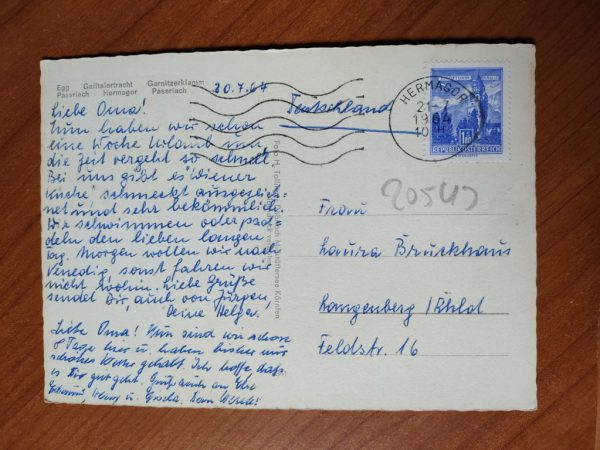 Egg Gailtalertracht Garnitzerklamm
Passriach Hermagor Passriach
20.7.64
Liebe Oma!
Nun haben wir schon
eine Woche Urlaub und
die Zeit vergeht so schnell.
Bei uns gibt es "Wiener
Küche" schmeckt ausgezeich-
net und sehr bekömmlich.
Wir schwimmen oder pad-
deln den lieben langen
Tag. Morgen wollen wir nach
Venedig, sonst fahren wir
nicht wohin. Liebe Grüße
sendet Dir, auch von Jürgen,
Deine Helga.
Liebe Oma! Nun sind wir schon
8 Tage hier u. haben bisher nur
schönes Wetter gehabt. Ich hoffe daß
es Dir gut geht. Grüß auch
u. Gisela.
Deutschland
HERMAGOR
1964
REPUBLIK ÖSTERREICH
20545
Frau
Laura Bruckhaus
Langenberg /Rhld
Feldstr. 16